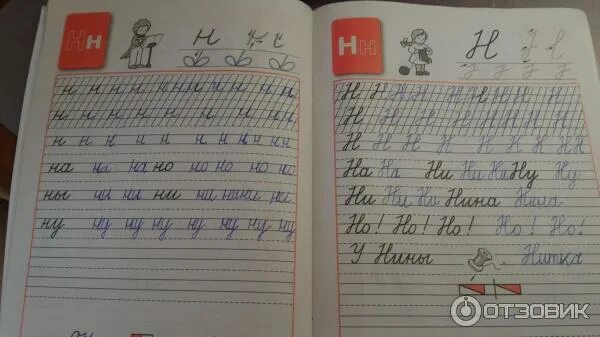 Нн
н
н н н н н н н н н н н
н н н н н н н н
н н н н н н н н н н
на на на но но но но но
ны ны ны ни ни нини ни
ну ну ну ну ну ну ну
Нн
Н
Н Н Н Н Н Н Н Н Н
Н Н Н Н Н Н Н Н
Н Н Н Н Н Н Н Н Н Н
На На Ни Ни Ни Ну Ну
Ни Ни Но Нина Нина
Но! Но! Но! Но! Но!
У Нины Нитка
ОТЗОВИК